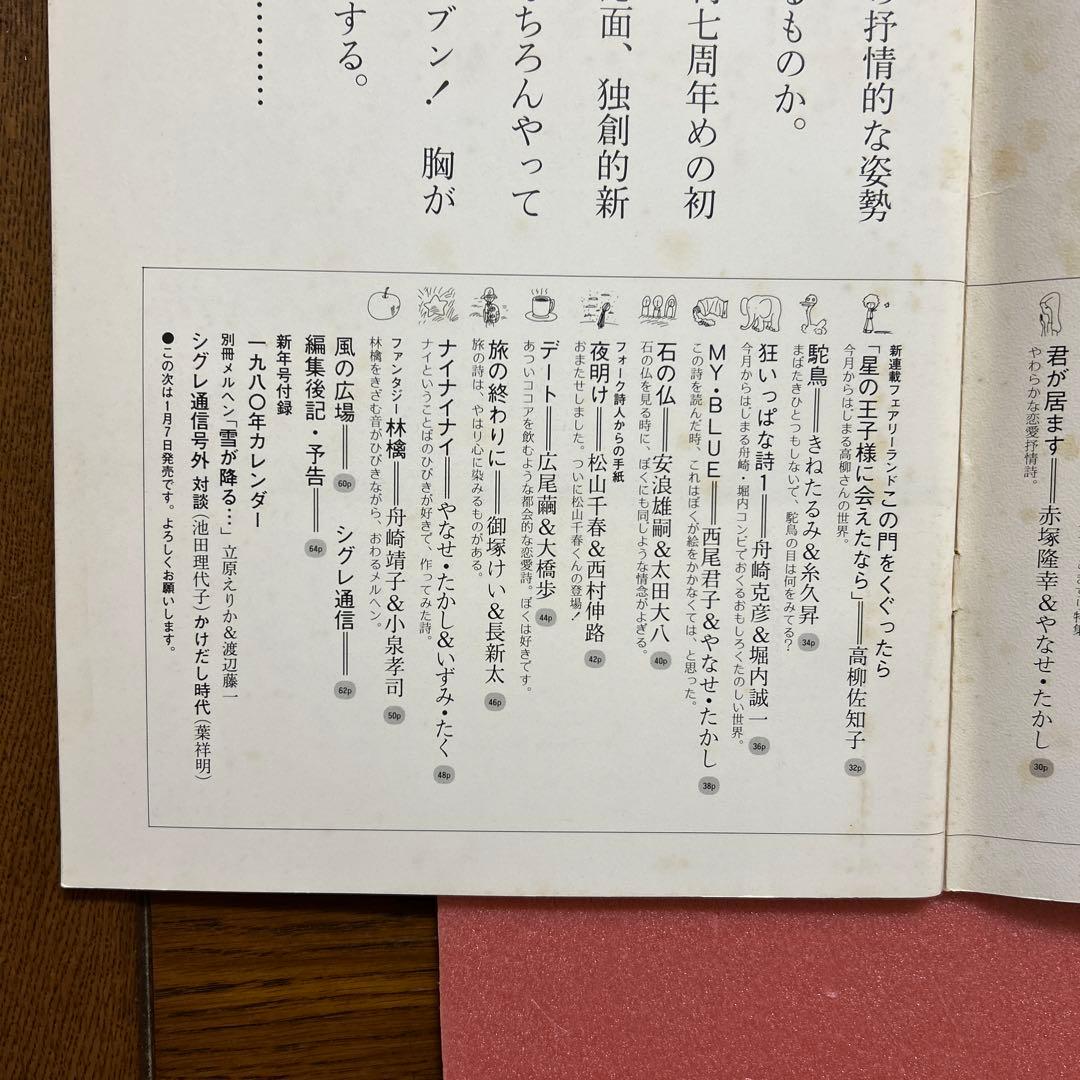 抒情的な姿勢
るものか。
七周年めの初
面、独創的新
ちろんやって
ブン！ 胸が
する。
…………
君が居ます══赤塚隆幸&やなせ・たかし 30p
やわらかな恋愛抒情詩。
新連載フェアリーランド この門をくぐったら
「星の王子様に会えたなら」══高柳佐知子 32p
今月からはじまる高柳さんの世界。
駝鳥══きねたるみ&糸久昇 34p
まばたきひとつもしないで、駝鳥の目は何をみてる？
狂いっぱな詩1══舟崎克彦&堀内誠一 36p
今月からはじまる舟崎・堀内コンビでおくるおもしろくたのしい世界。
MY・BLUE══西尾君子&やなせ・たかし 38p
この詩を読んだ時、これはぼくが絵をかかなくては、と思った。
石の仏══安浪雄嗣&太田大八 40p
石の仏を見る時に、ぼくにも同じような情念がよぎる。
フォーク詩人からの手紙
夜明け══松山千春&西村伸路 42p
おまたせしました。ついに松山千春くんの登場！
デート══広尾繭&大橋歩 44p
あついココアを飲むような都会的な恋愛詩。ぼくは好きです。
旅の終わりに══御塚けい&長新太 46p
旅の詩は、やはり心に染みるものがある。
ナイナイナイ══やなせ・たかし&いずみ・たく 48p
ナイということばのひびきが好きて、作ってみた詩。
ファンタジー 林檎══舟崎靖子&小泉孝司 50p
林檎をきざむ音がひびきながら、おわるメルヘン。
風の広場══ 60p シグレ通信══ 62p
編集後記・予告══ 64p
新年号付録
一九八〇年カレンダー
別冊メルヘン「雪が降る…」立原えりか&渡辺藤一
シグレ通信号外 対談（池田理代子）かけだし時代（葉祥明）
●この次は1月7日発売です。よろしくお願いします。